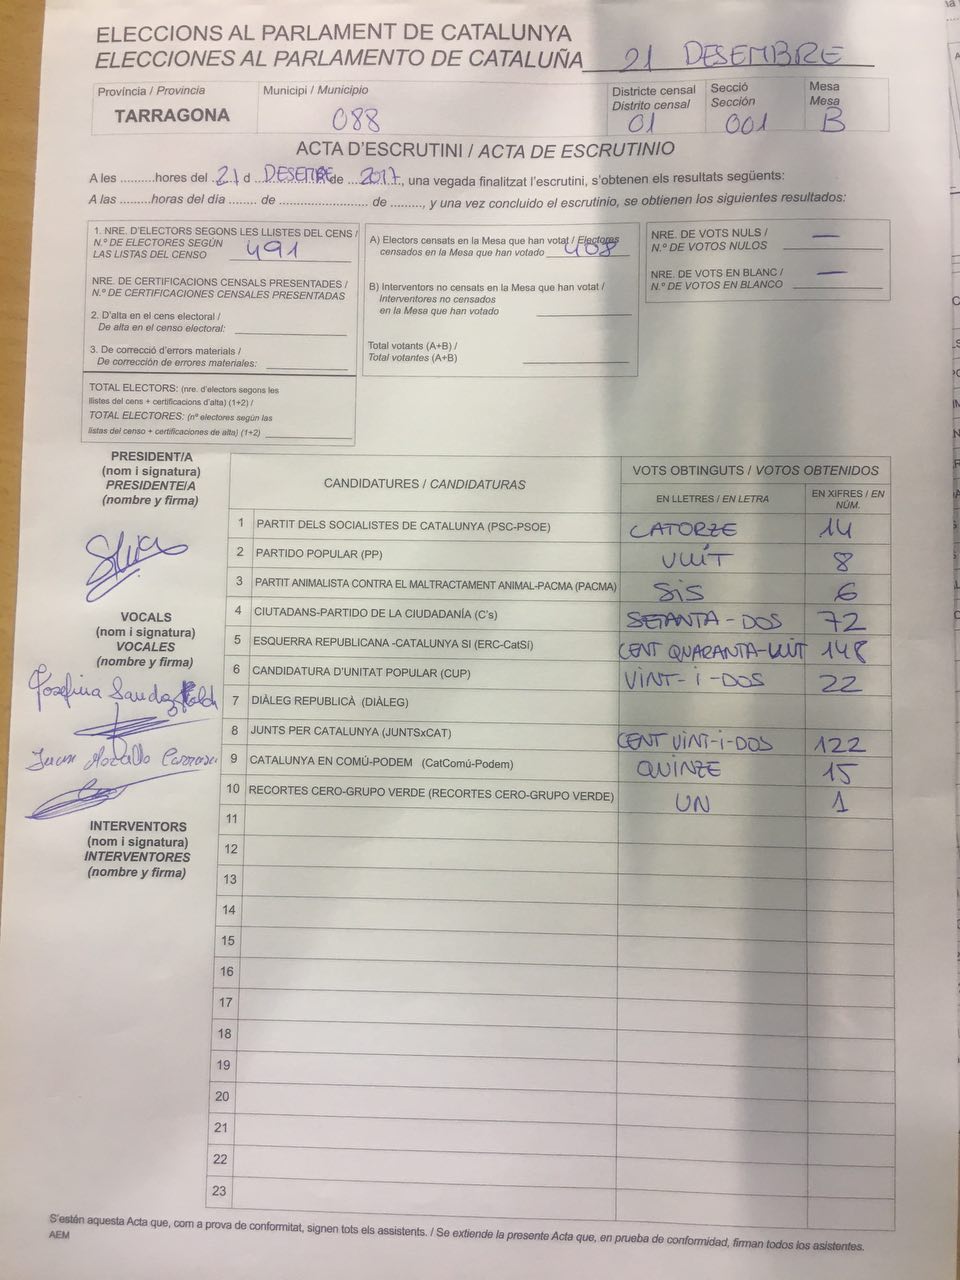 ELECCIONS AL PARLAMENT DE CATALUNYA
ELECCIONES AL PARLAMENTO DE CATALUÑA 21 DESEMBRE
Província / Provincia
TARRAGONA
Municipi / Municipio
088
Districte censal
Distrito censal
01
Secció
Sección
001
Mesa
Mesa
B
ACTA D'ESCRUTINI / ACTA DE ESCRUTINIO
A les ..........hores del 21 d DESEMBRE de 2017, una vegada finalitzat l'escrutini, s'obtenen els resultats següents:
A las .........horas del día ........ de .......................... de ........., y una vez concluido el escrutinio, se obtienen los siguientes resultados:
1. NRE. D'ELECTORS SEGONS LES LLISTES DEL CENS /
N.º DE ELECTORES SEGÚN
LAS LISTAS DEL CENSO 491
NRE. DE CERTIFICACIONS CENSALS PRESENTADES /
N.º DE CERTIFICACIONES CENSALES PRESENTADAS
2. D'alta en el cens electoral /
De alta en el censo electoral:
3. De correcció d'errors materials /
De corrección de errores materiales:
TOTAL ELECTORS: (nre. d'electors segons les
llistes del cens + certificacions d'alta) (1+2) /
TOTAL ELECTORES: (nº electores según las
listas del censo + certificaciones de alta) (1+2)
A) Electors censats en la Mesa que han votat / Electores
censados en la Mesa que han votado 408
B) Interventors no censats en la Mesa que han votat /
Interventores no censados
en la Mesa que han votado
Total votants (A+B) /
Total votantes (A+B)
NRE. DE VOTS NULS / —
N.º DE VOTOS NULOS
NRE. DE VOTS EN BLANC / —
N.º DE VOTOS EN BLANCO
PRESIDENT/A
(nom i signatura)
PRESIDENTE/A
(nombre y firma)
VOCALS
(nom i signatura)
VOCALES
(nombre y firma)
Josefina
Juan
INTERVENTORS
(nom i signatura)
INTERVENTORES
(nombre y firma)
CANDIDATURES / CANDIDATURAS
VOTS OBTINGUTS / VOTOS OBTENIDOS
EN LLETRES / EN LETRA
EN XIFRES / EN NÚM.
1 PARTIT DELS SOCIALISTES DE CATALUNYA (PSC-PSOE) CATORZE 14
2 PARTIDO POPULAR (PP) VUIT 8
3 PARTIT ANIMALISTA CONTRA EL MALTRACTAMENT ANIMAL-PACMA (PACMA) SIS 6
4 CIUTADANS-PARTIDO DE LA CIUDADANÍA (C's) SETANTA-DOS 72
5 ESQUERRA REPUBLICANA -CATALUNYA SI (ERC-CatSí) CENT QUARANTA-VUIT 148
6 CANDIDATURA D'UNITAT POPULAR (CUP) VINT-I-DOS 22
7 DIÀLEG REPUBLICÀ (DIÀLEG)
8 JUNTS PER CATALUNYA (JUNTSxCAT) CENT VINT-I-DOS 122
9 CATALUNYA EN COMÚ-PODEM (CatComú-Podem) QUINZE 15
10 RECORTES CERO-GRUPO VERDE (RECORTES CERO-GRUPO VERDE) UN 1
11
12
13
14
15
16
17
18
19
20
21
22
23
S'estén aquesta Acta que, com a prova de conformitat, signen tots els assistents. / Se extiende la presente Acta que, en prueba de conformidad, firman todos los asistentes.
AEM